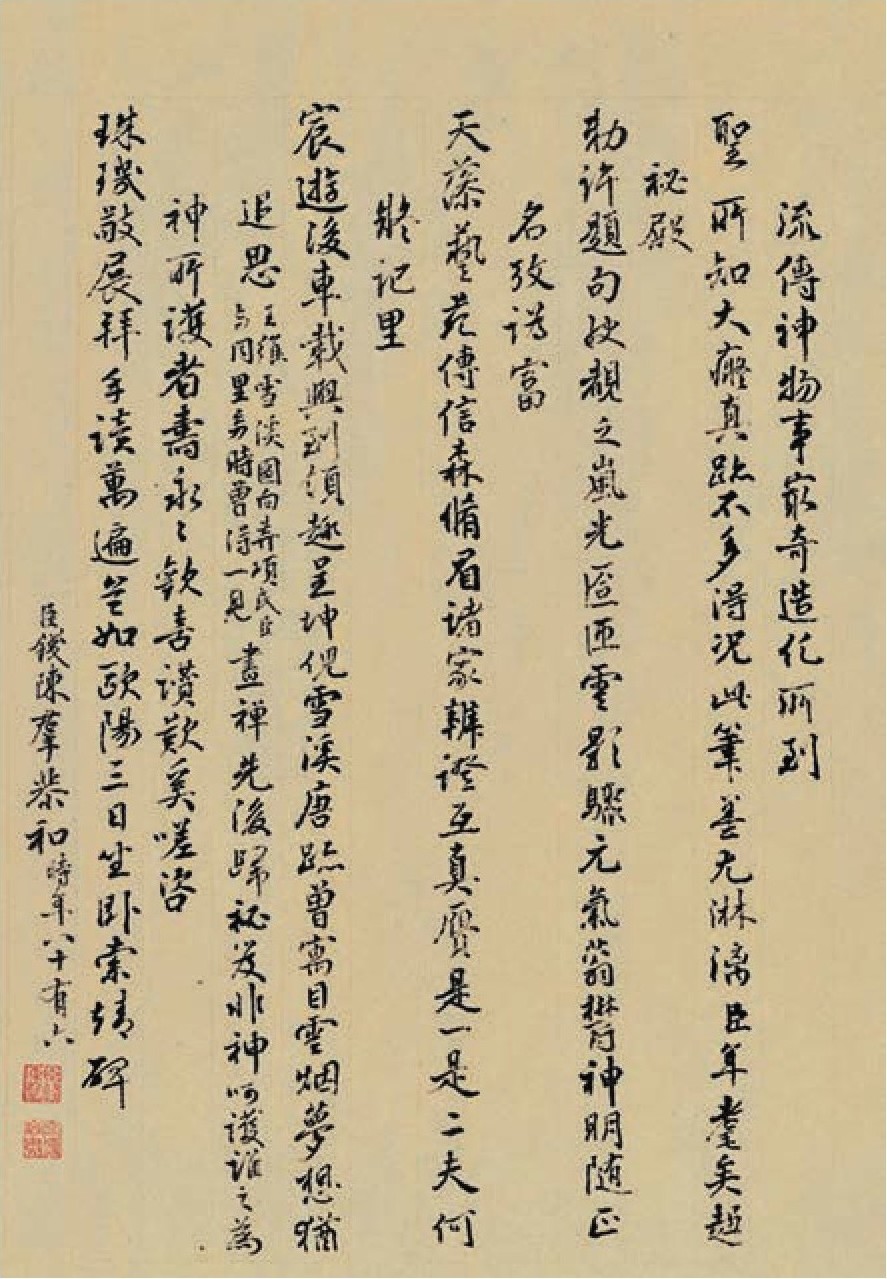 流傳神物事最奇造化所到
聖所知大癡真跡不多得況此筆善尤淋漓臣年耄矣趨
祕殿
勅許題句快觀之嵐光匼匝雲影驟元氣蓊鬱神明隨正
名攷譌富
天藻藝苑傳信森脩眉諸家辨證互真贋是一是二夫何
疑記里
宸遊後車載興到須趣呈坤倪雪溪唐跡曾寓目雲烟夢想猶
追思王維雪溪圖向弆項氏臣與同里弟時曾得一見畫禪先後歸祕笈非神呵護誰之為
神所護者壽永永歡喜讚歎奚嗟咨
珠璣敬展拜手讀萬遍豈如歐陽三日坐臥索靖碑
臣錢陳羣恭和時年八十有六